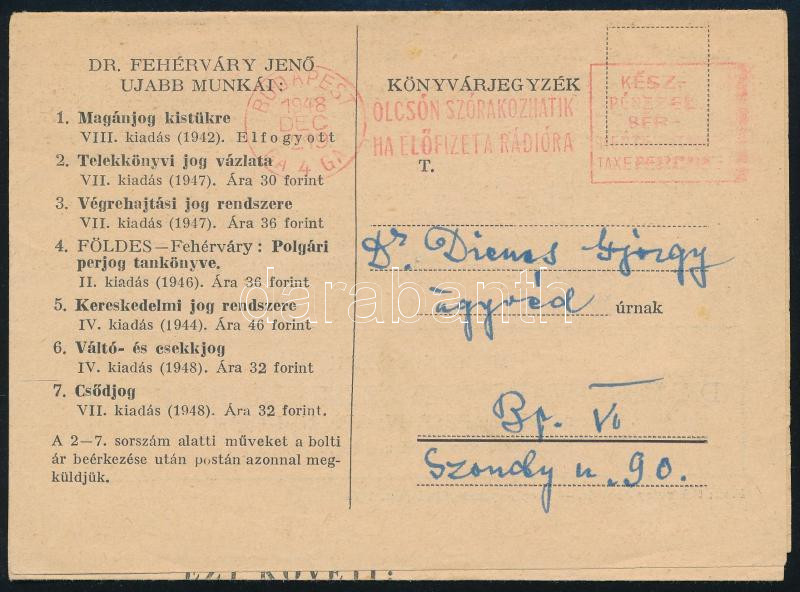 DR. FEHÉRVÁRY JENŐ
UJABB MUNKÁI:
1. Magánjog kistükre
VIII. kiadás (1942). Elfogyott
2. Telekkönyvi jog vázlata
VII. kiadás (1947). Ára 30 forint
3. Végrehajtási jog rendszere
VII. kiadás (1947). Ára 36 forint
4. FÖLDES—Fehérváry: Polgári
perjog tankönyve.
II. kiadás (1946). Ára 36 forint
5. Kereskedelmi jog rendszere
IV. kiadás (1944). Ára 46 forint
6. Váltó- és csekkjog
IV. kiadás (1948). Ára 32 forint
7. Csődjog
VII. kiadás (1948). Ára 32 forint.
A 2—7. sorszám alatti műveket a bolti
ár beérkezése után postán azonnal meg-
küldjük.
BUDAPEST
1948
DEC
4
KÖNYVÁRJEGYZÉK
OLCSÓN SZÓRAKOZHATIK
HA ELŐFIZET A RÁDIÓRA
KÉSZ-
BÉR-
TAXE
T.
Dr. Dienes György
ügyvéd úrnak
Bp. VI
Szondy u. 90.
darabanth
EZT KÖVETI: